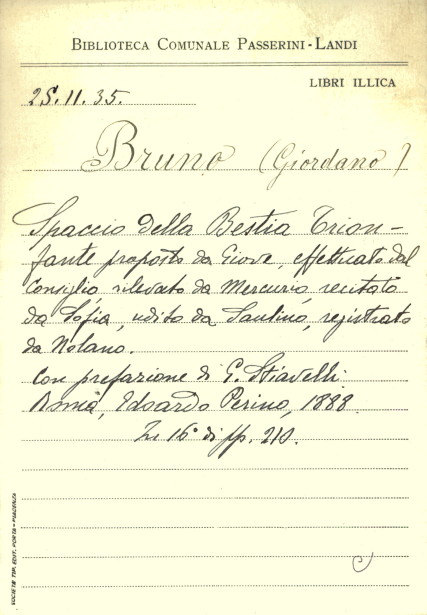 BIBLIOTECA COMUNALE PASSERINI-LANDI
LIBRI ILLICA
25.11.35.
Bruno (Giordano)
Spaccio della Bestia Trion-
fante proposto da Giove, effettuato dal
Consiglio, rilevato da Mercurio, recitato
da Sofia, udito da Saulino, registrato
da Nolano.
Con prefazione di G. Stiavelli.
Roma, Edoardo Perino, 1888
In 16° di pp. 210.
SOCIETÀ TIP. EDIT. PORTA-PIACENZA